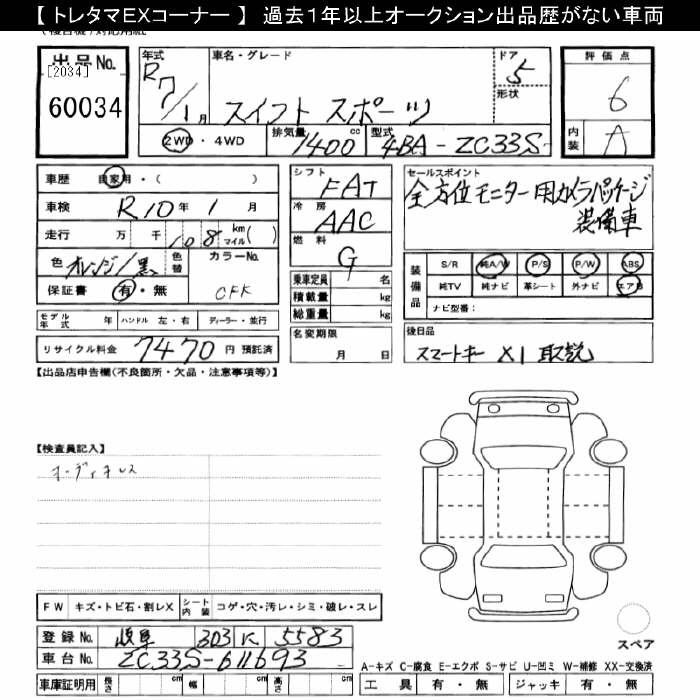 【 トレタマEXコーナー 】 過去1年以上オークション出品歴がない車両
出品No.
[2034]
60034
年式
R7/1月
車名・グレード
スイフト スポーツ
ドア
5
形状
評価点
6
内装
A
2WD ・ 4WD
排気量
1400 cc
型式
4BA-ZC33S
車歴
自家用・( )
車検
R10年 1月
走行
万 千 108 km マイル ( )
色
オレンジ/黒
色替
カラーNo.
CFK
保証書
有・無
モデル年式
年
ハンドル 左・右
ディーラー・並行
リサイクル料金 7470 円 預託済
シフト
FAT
冷房
AAC
燃料
G
乗車定員 名
積載量 kg
総重量 kg
名変期限
月 日
セールスポイント
全方位モニター用カメラパッケージ
装備車
装備品
S/R 純A/W P/S P/W ABS
純TV 純ナビ 革シート 外ナビ エアB
ナビ型番：
後日品
スマートキー X1 取説
【出品店申告欄(不良箇所・欠品・注意事項等)】
【検査員記入】
オーディオレス
FW キズ・トビ石・割レX
シート内装 コゲ・穴・汚レ・シミ・破レ・スレ
登録No. 岐阜 303 に 5583
車台No. ZC33S-611693
車庫証明用 長さ cm 幅 cm 高さ cm
スペア
A-キズ C-腐食 E-エクボ S-サビ U-凹ミ W-補修 XX-交換済
工具 有・無 ジャッキ 有・無